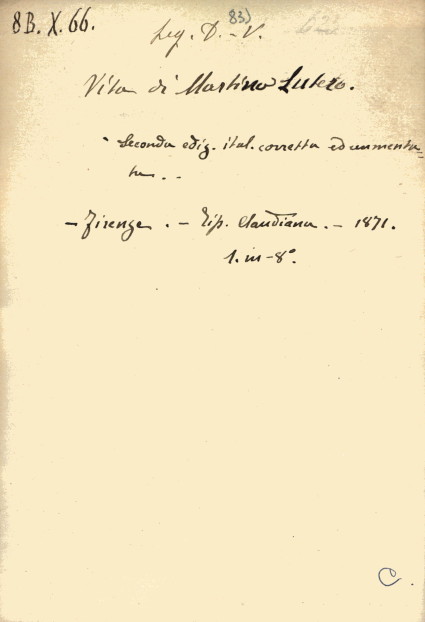 8B. X. 66.
83)
Leg. D.-V.
Vita di Martino Lutero.
Seconda ediz. ital. corretta ed aumenta=
ta. -
- Firenze. - Tip. Claudiana. - 1871.
1. in-8°.
C.